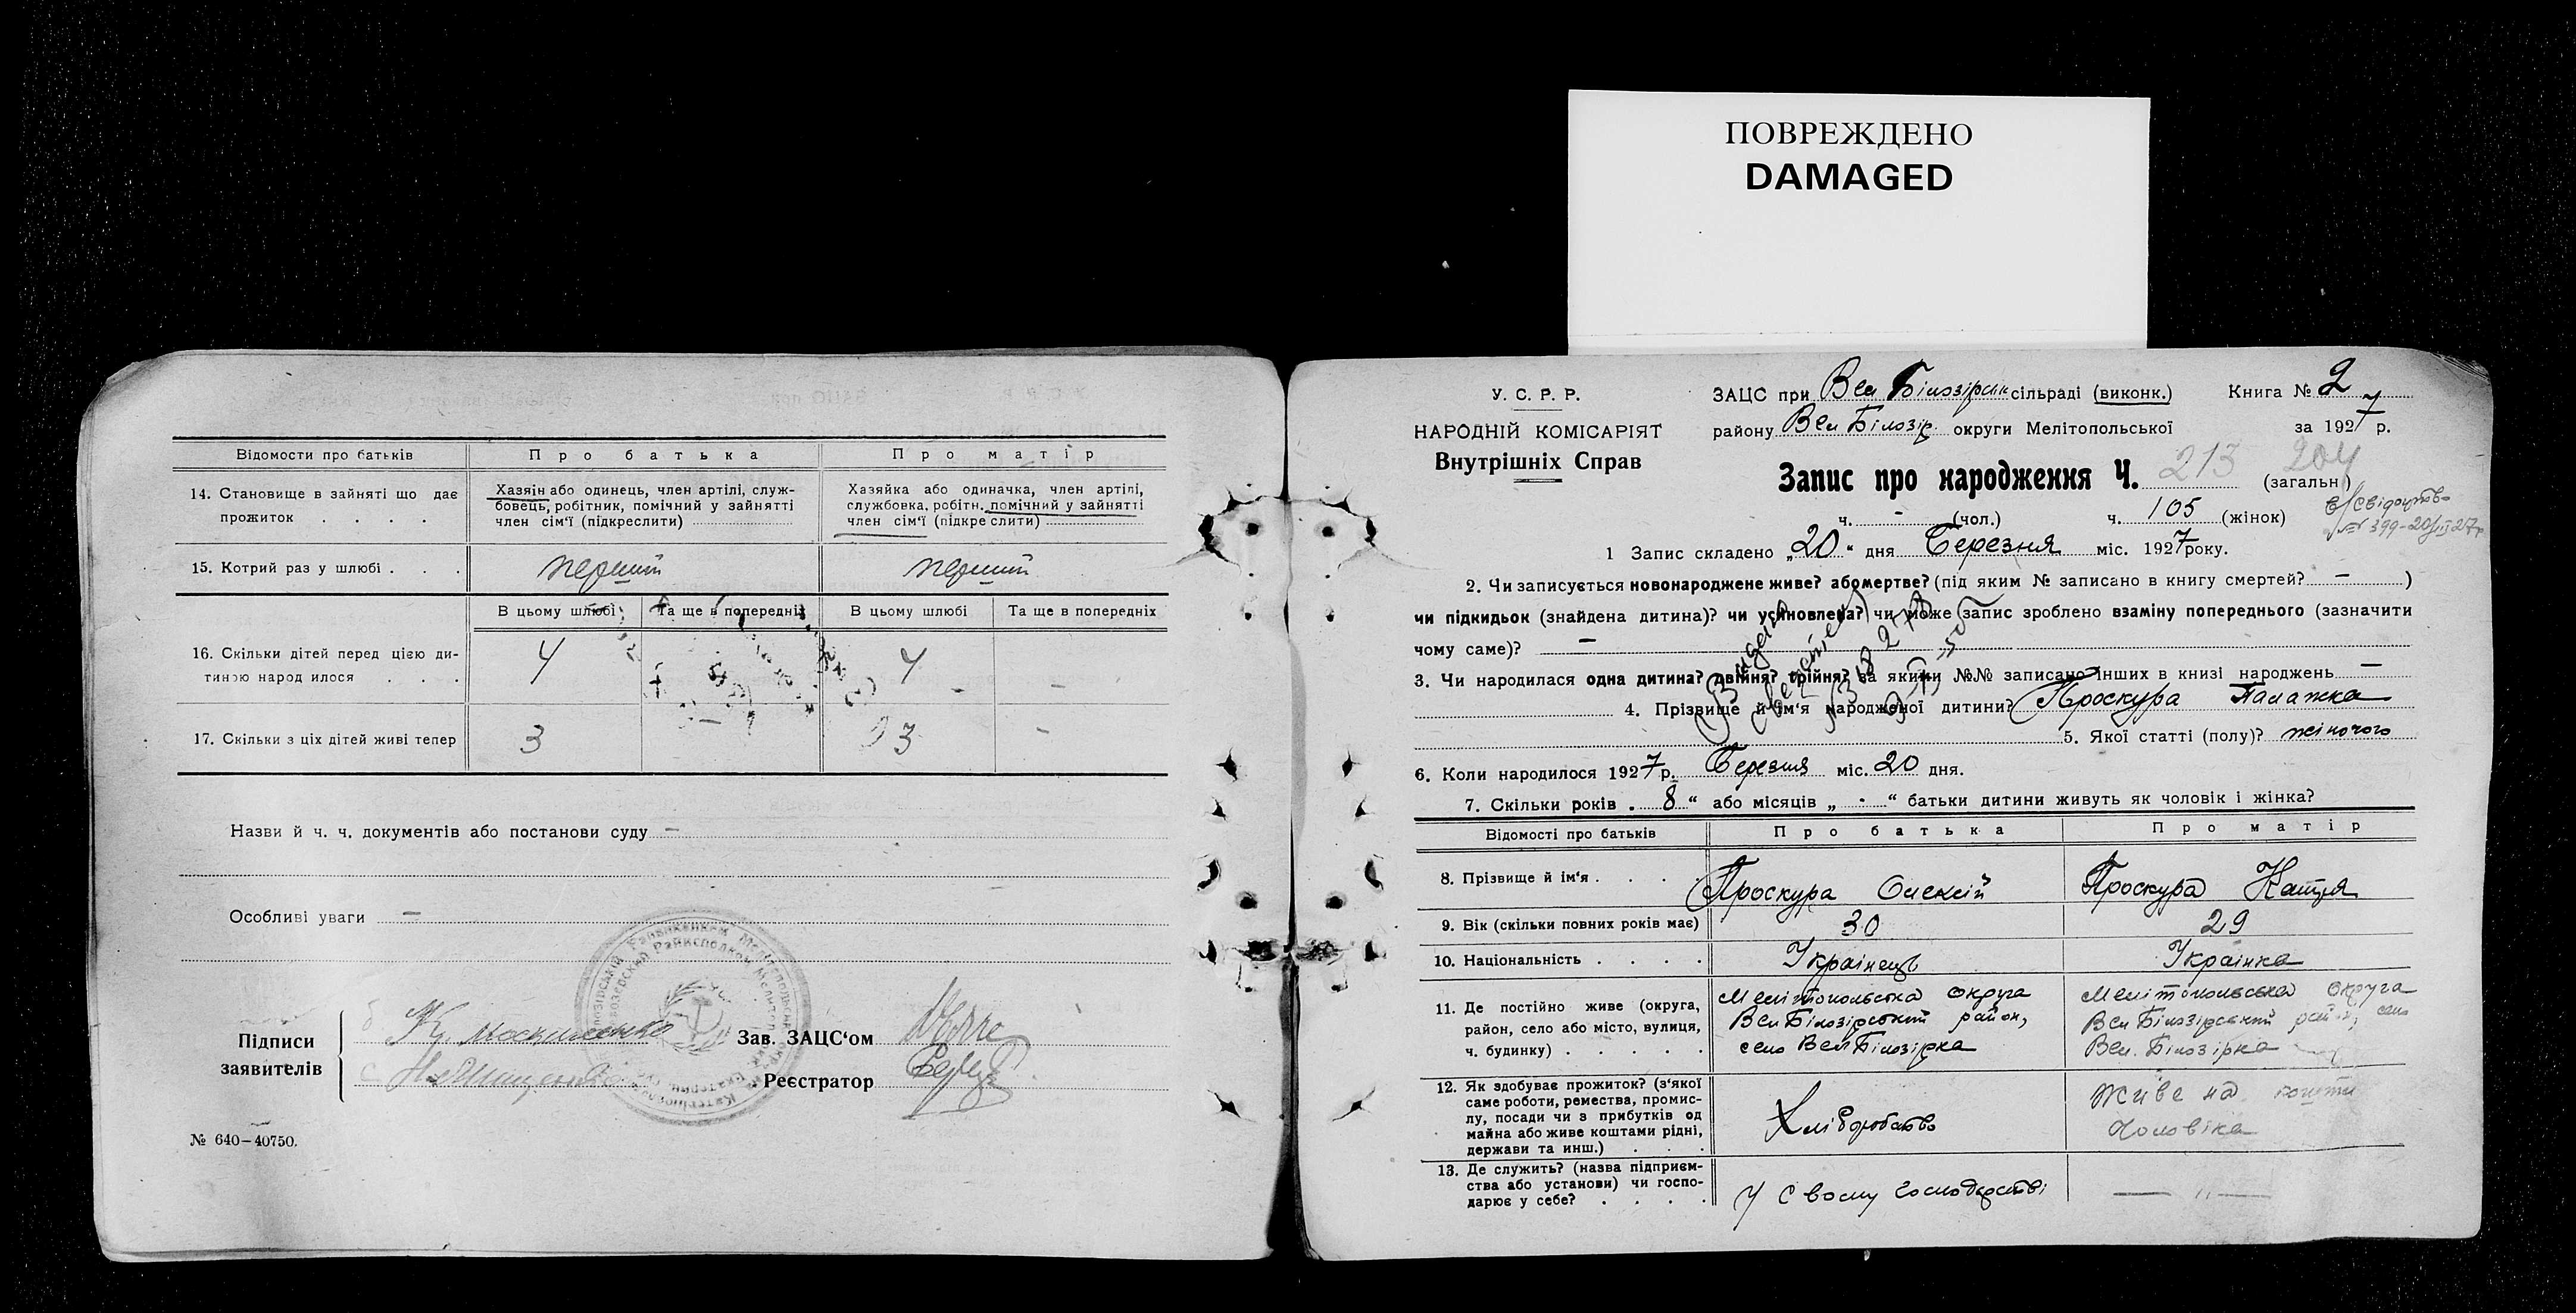 ПОВРЕЖДЕНО
DAMAGED
Відомости про батьків
Про батька
Про матір
14. Становище в зайняті що дає прожиток . . . .
Хазяін або одинець, член артілі, служ-
бовець, робітник, помічний у зайнятті
член сім'ї (підкреслити)
Хазяйка або одиначка, член артілі,
службовка, робітн. помічний у зайнятті
член сім'ї (підкреслити)
15. Котрий раз у шлюбі . . .
перший
перший
В цьому шлюбі
Та ще в попередніх
В цьому шлюбі
Та ще в попередніх
16. Скільки дітей перед цією ди-
тиною народилося . . .
4
4
-
17. Скільки з ціх дітей живі тепер
3
3
-
Назви й ч. ч. документів або постанови суду –
Особливі уваги –
Підписи
заявителів
Зав. ЗАЦС'ом
Реєстратор
№ 640–40750.
У. С. Р. Р.
НАРОДНІЙ КОМІСАРІЯТ
Внутрішніх Справ
ЗАЦС при Вел Білозірськ сільраді (виконк.)
Книга № 2
району Вел Білозір. округи Мелітопольської
за 1927 р.
Запис про народження Ч. 213 204
(загальн)
ч. - (чол.)
ч. 105 (жінок)
Свідоцтво
№ 399-20/III 27р
1 Запис складено „20“ дня Березня міс. 1927 року.
2. Чи записується новонароджене живе? або мертве? (під яким № записано в книгу смертей? – )
чи підкидьок (знайдена дитина)? чи усиновлена? чи може запис зроблено взаміну попереднього (зазначити
чому саме)? –
3. Чи народилася одна дитина? двійня? трійня? за якими №№ записано інших в книзі народжень –
4. Прізвище й ім'я народженої дитини? Проскура Палажка
5. Якої статті (полу)? жіночого
6. Коли народилося 1927 р. Березня міс. 20 дня.
7. Скільки років . 8 “ або місяців „ - “ батьки дитини живуть як чоловік і жінка?
Відомості про батьків
Про батька
Про матір
8. Прізвище й ім'я . . .
Проскура Олексій
Проскура Катря
9. Вік (скільки повних років має)
30
29
10. Національність . . . .
Українець
Українка
11. Де постійно живе (округа,
район, село або місто, вулиця,
ч. будинку) . . . . .
Мелітопольська округа
Вел Білозірський район,
село Вел Білозірка
Мелітопольська округа
Вел Білозірський район, село
Вел. Білозірка
12. Як здобуває прожиток? (з'якої
саме роботи, ремества, промис-
лу, посади чи з прибутків од
майна або живе коштами рідні,
держави та инш.) . . .
Хліборобство
Живе на кошти
чоловіка
13. Де служить? (назва підприєм-
ства або установи) чи госпо-
дарює у себе? . . . .
У своєму господарстві
— „ —